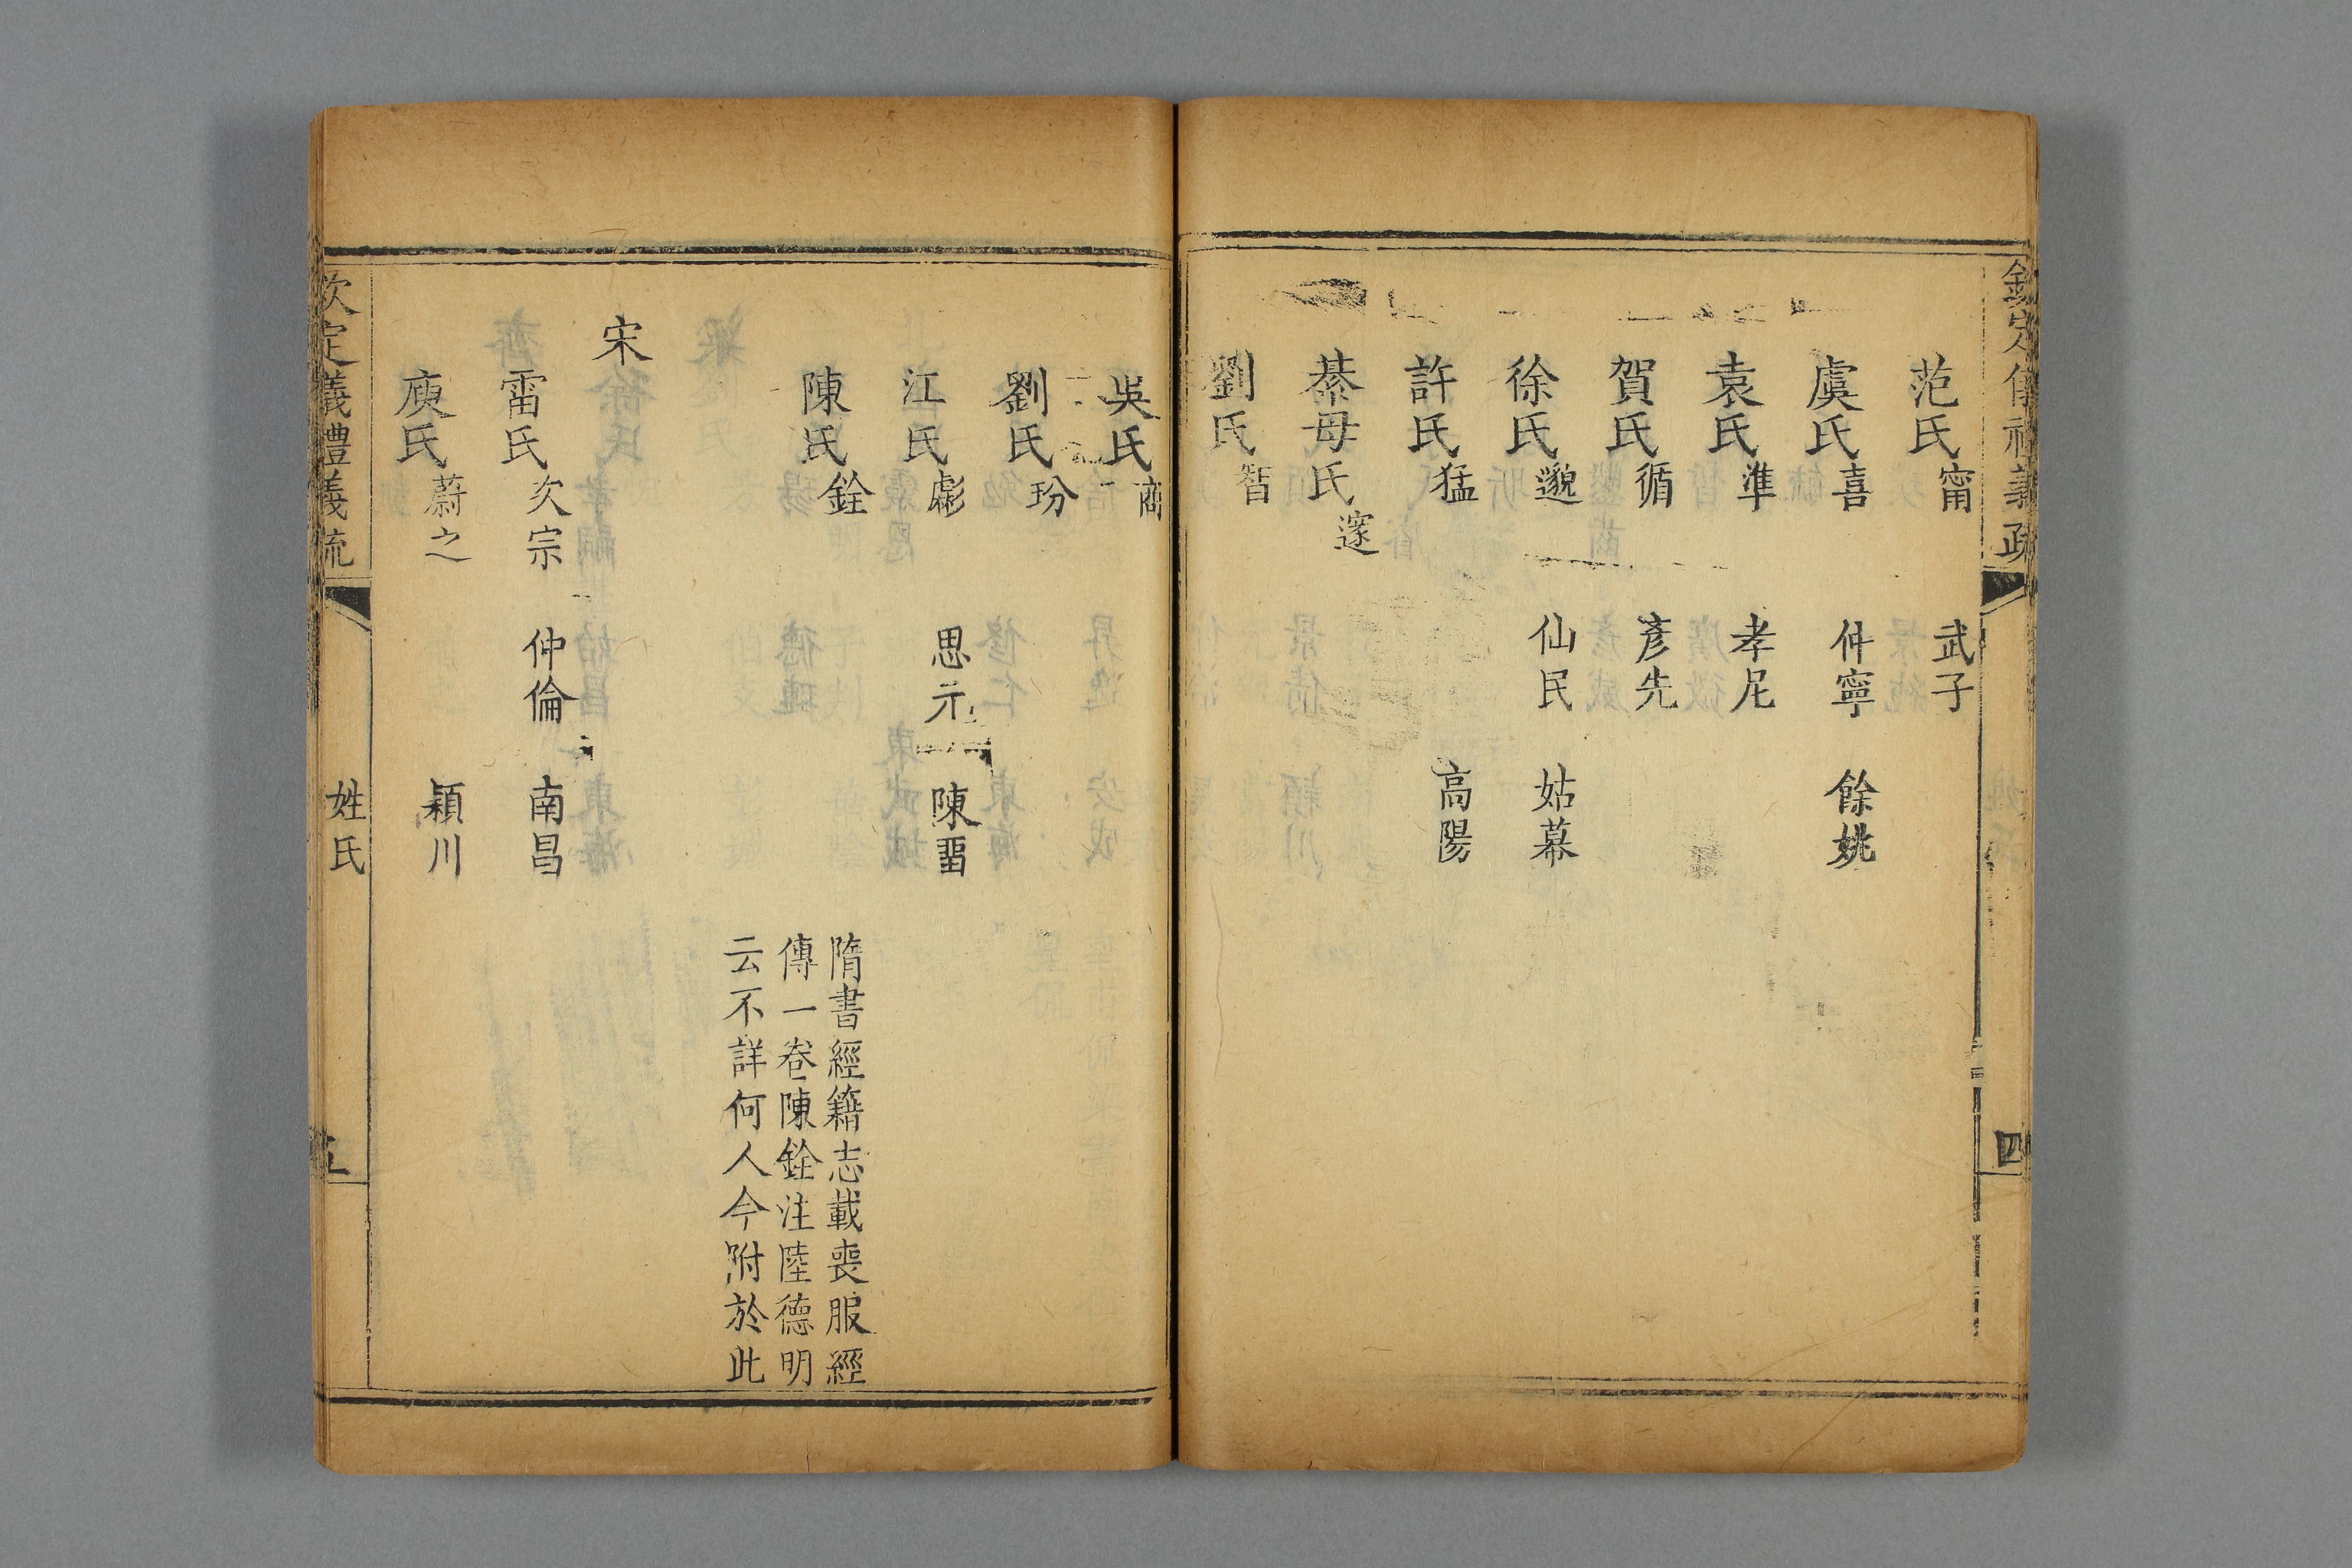 欽定儀禮義疏 四
范氏甯 武子
虞氏喜 仲寧 餘姚
袁氏準 孝尼
賀氏循 彥先
徐氏邈 仙民 姑幕
許氏猛 高陽
綦毋氏邃
劉氏智
吳氏商
劉氏玢
江氏彪 思元 陳畱
陳氏銓
隋書經籍志載喪服經
傳一卷陳銓注陸德明
云不詳何人今附於此
宋
雷氏次宗 仲倫 南昌
庾氏蔚之 潁川
欽定儀禮義疏 姓氏